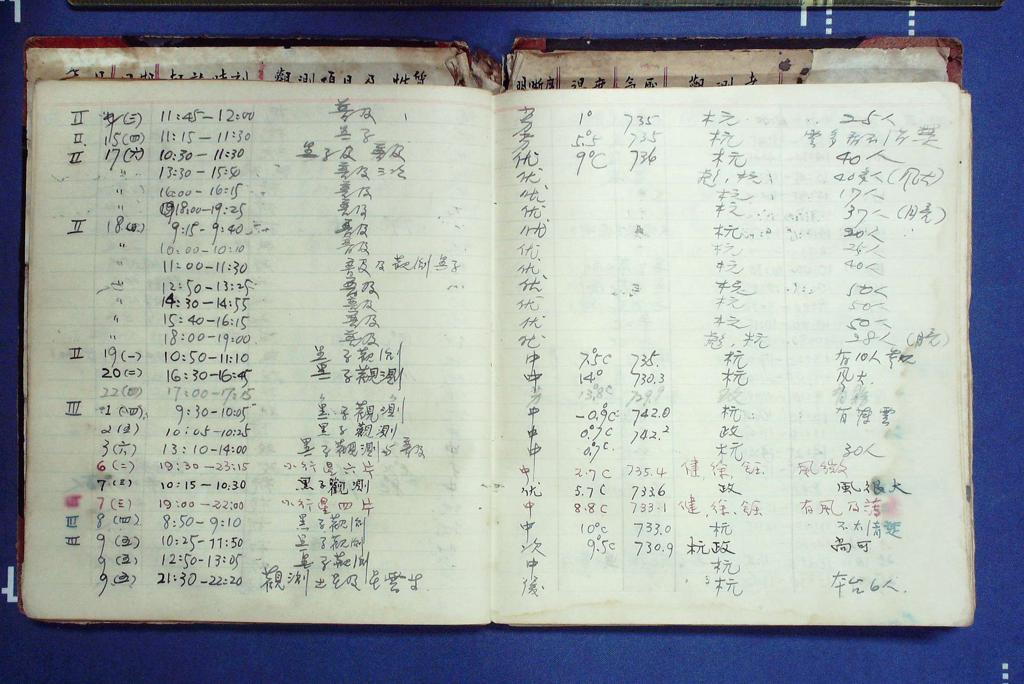 觀測項目及性質 清晰度 溫度 氣压 觀測者
II (三) 11:45-12:00 普及 1° 735 杭 25人
II 15(四) 11:15-11:30 黑子 5.5 735 杭
II 17(六) 10:30-11:30 黑子及普及 优 9°C 736 杭 40人
〃 13:30-15:50 普及三次 优 彪,杭 (风大)
〃 16:00-16:15 普及 优 杭 17人
18:00-19:25 普及 优 杭 37人(月亮)
II 18(日) 9:15-9:40 普及 优 杭 20人
〃 10:00-10:10 普及 优 杭 25人
11:00-11:30 普及及觀測黑子 优 杭 40人
12:50-13:25 普及 优 杭 50人
〃 14:30-14:55 普及 优 杭 50人
〃 15:40-16:15 普及 优 杭 50人
〃 18:00-19:00 普及 优 彪,杭 28人(月亮)
II 19(一) 10:50-11:10 黑子觀測 中 7.5°C 735. 杭
20(二) 16:30-16:45 黑子觀測 中 14° 730.3 杭 风大.
22(四) 17:00-17:15 政
III 1(四) 9:30-10:05 黑子觀測 中 -0.9°C 742.0 杭 有薄雲
2(五) 10:05-10:25 黑子觀測 中 0.7°C 742.2 政
3(六) 13:10-14:00 黑子觀測与普及 中 0.7°C 杭 30人
6(二) 19:30-23:15 小行星六片 中 2.7C 735.4 健,徐, 風微
7(三) 10:15-10:30 黑子觀測 优 5.7C 733.6 政 風很大
7(三) 19:00-22:00 小行星四片 中 8.8C 733.1 健,徐,
III 8(四) 8:50-9:10 黑子觀測 中 10°C 733.0 杭 不太清楚
III 9(五) 10:25-11:50 黑子觀測 次 9.5C 730.9 杭政 尚可
9(五) 12:50-13:05 黑子觀測 中 杭
9(五) 21:30-22:20 觀測土星及星雲 杭 在台6人.